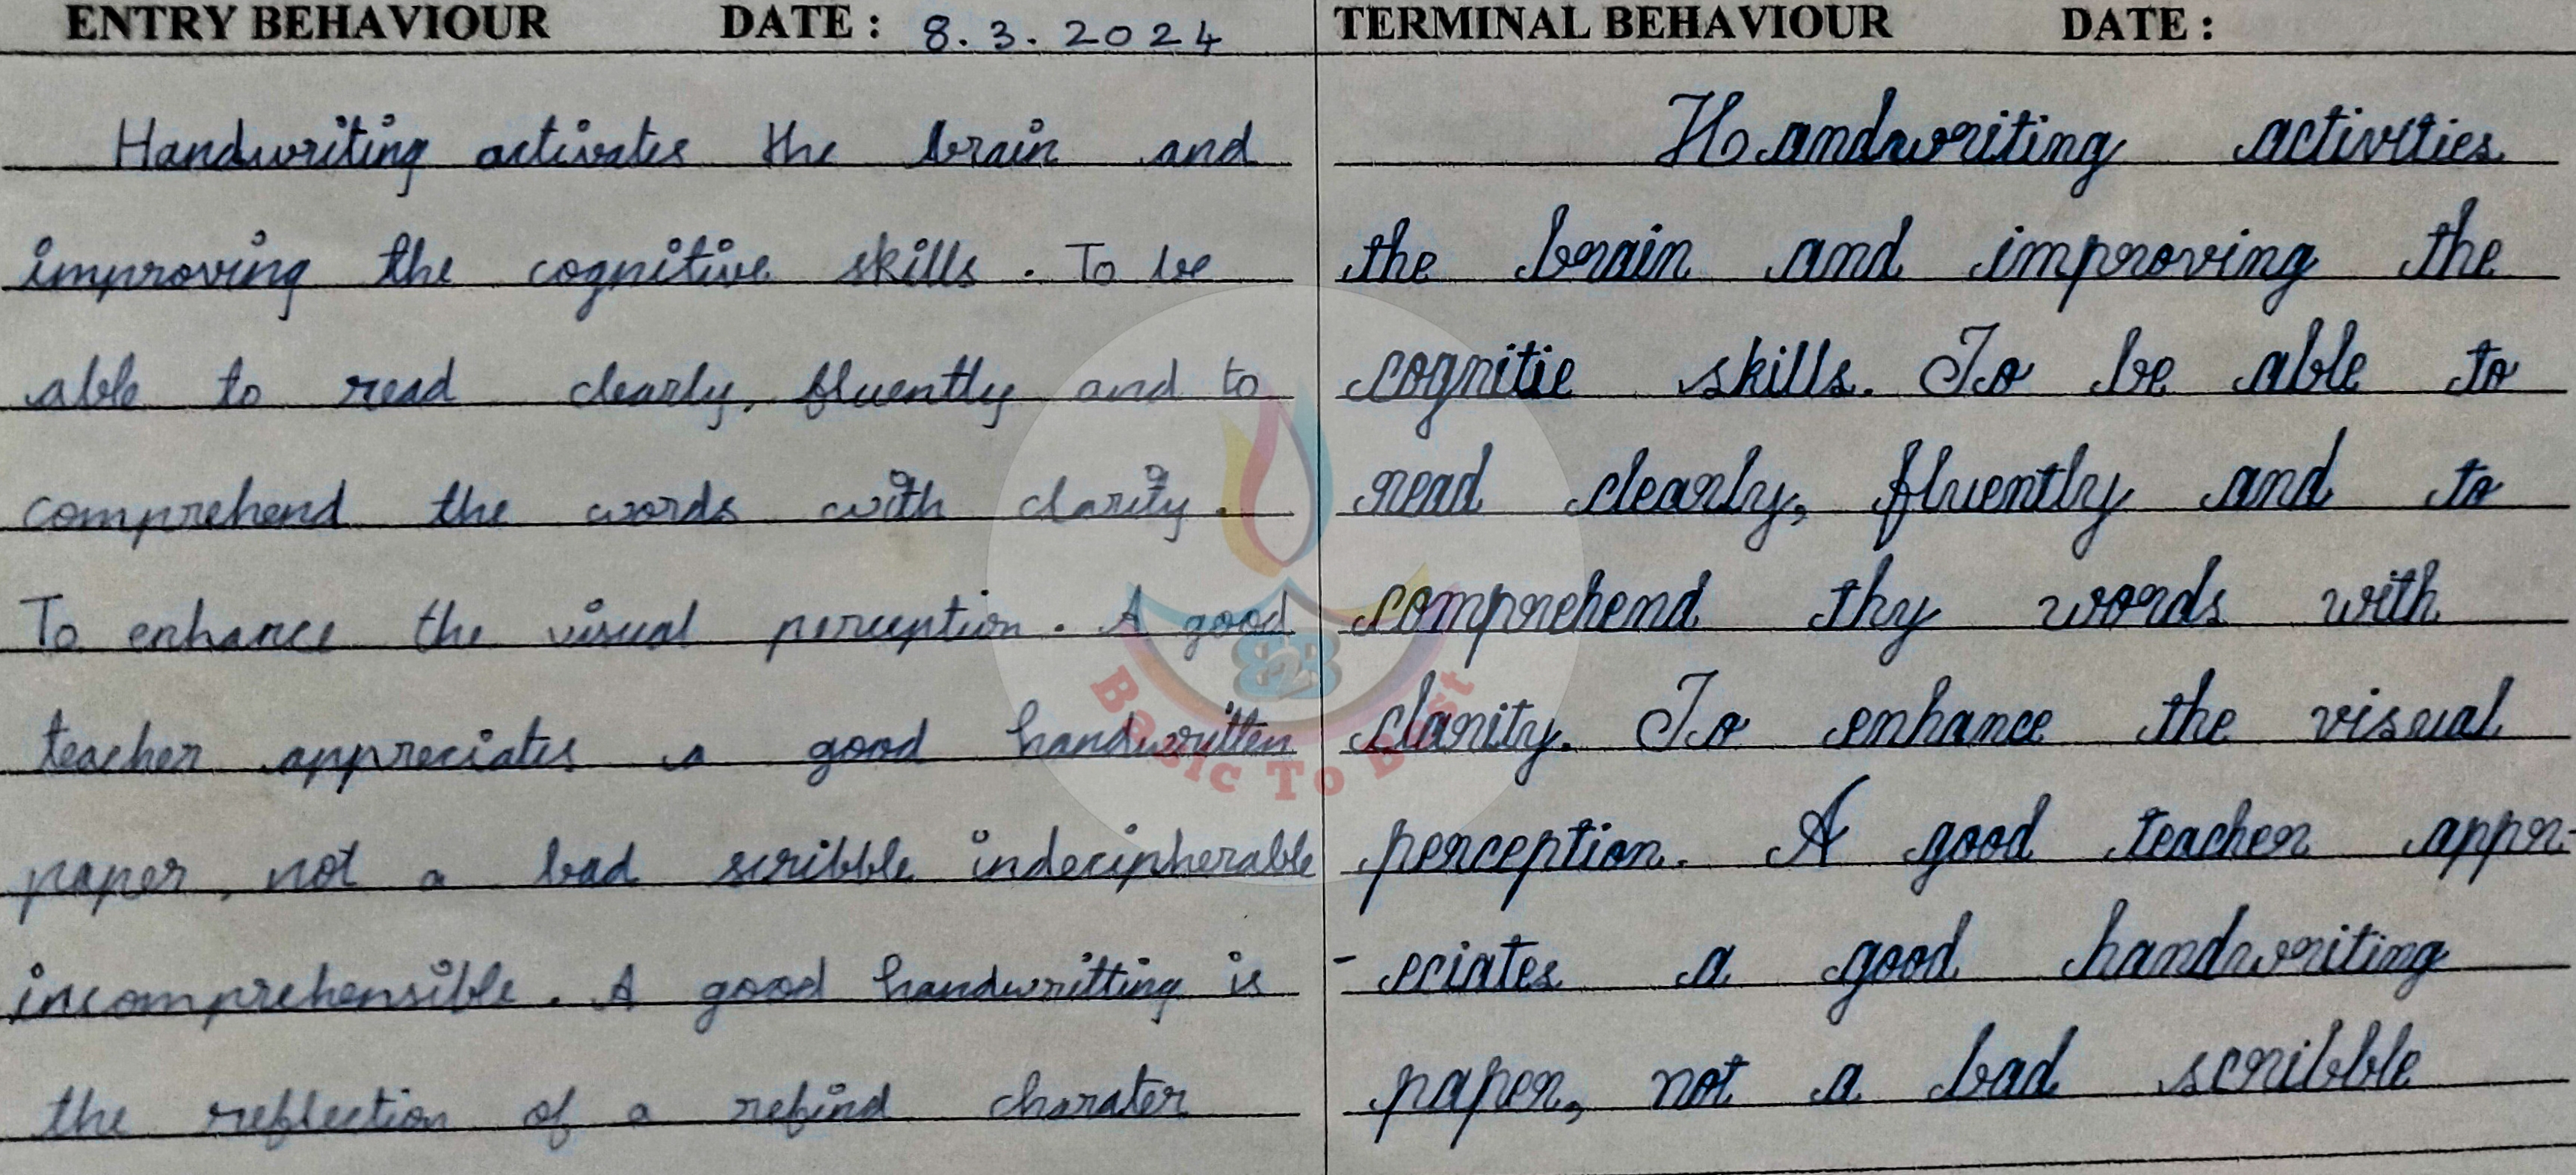 ENTRY BEHAVIOUR DATE : 8.3.2024
Handwriting activates the brain and
improving the cognitive skills. To be
able to read clearly, fluently and to
comprehend the words with clarity.
To enhance the visual perception. A good
teacher appreciates a good handwritten
paper, not a bad scribble indecipherable
incomprehensible. A good handwritting is
the reflection of a refind charater
TERMINAL BEHAVIOUR DATE :
Handwriting activities
the brain and improving the
cognitie skills. To be able to
read clearly, fluently and to
comprehend thy words with
clarity. To enhance the visual
perception. A good teacher appr-
- eciates a good handwriting
paper, not a bad scribble
B2B
Basic To Best